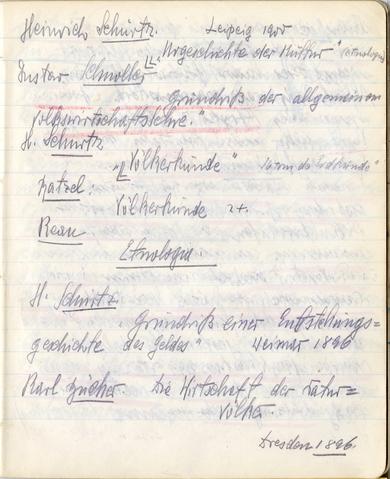 Heinrich Schurtz. Leipzig 1900
"Urgeschichte der Kultur"
Gustav Schmoller
Grundriß der allgemeinen
Volkswirtschaftslehre."
H. Schurtz
"Völkerkunde"
Ratzel:
Völkerkunde 2t.
Reau
Etnologia
H. Schurtz.
"Grundriß einer Entstehungs=
geschichte des Geldes" Weimar 1896
Karl Bücher. Die Wirtschaft der Natur=
völker.
Dresden 1896.